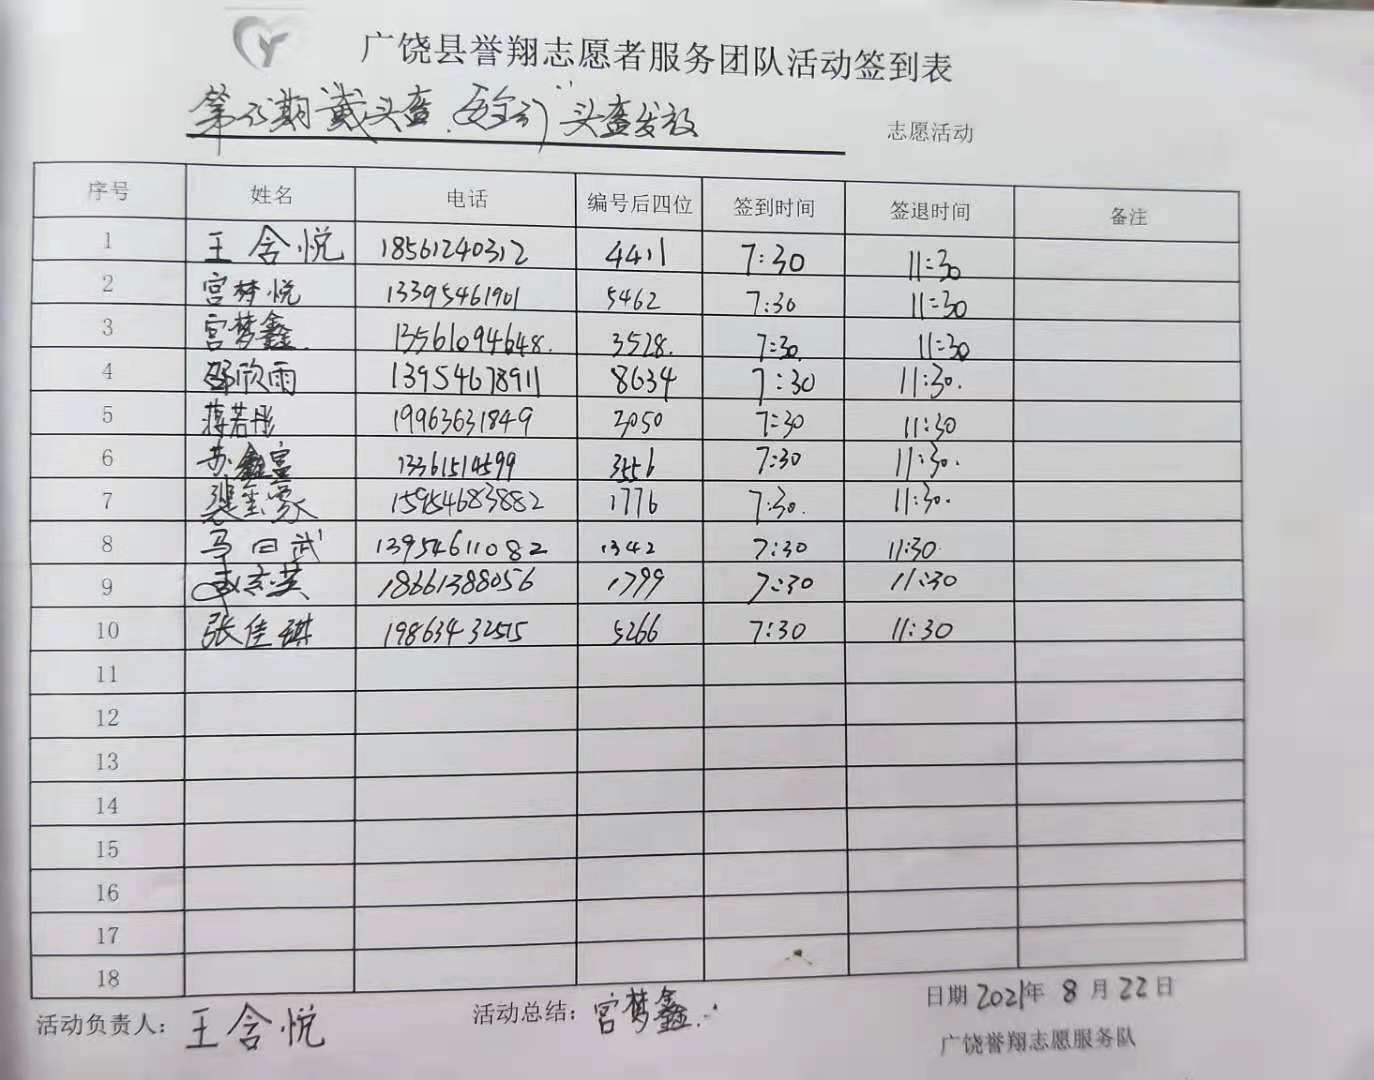 广饶县誉翔志愿者服务团队活动签到表
期"戴头盔.安全行"头盔发放 志愿活动
序号 姓名 电话 编号后四位 签到时间 签退时间 备注
1 王含悦 18561240312 4411 7:30 11:30
2 宫梦悦 13395461901 5462 7:30 11:30
3 宫梦鑫 13561094648. 3528. 7:30 11:30
4 邵欣雨 13954678911 8634 7:30 11:30.
5 蒋若彤 19963631849 2050 7:30 11:30
6 苏鑫富 13361514599 3556 7:30 11:30.
7 15954683882 1776 7:30. 11:30.
8 马曰武 13954611082 1342 7:30 11:30
9 18661388056 1799 7:30 11:30
10 张佳琪 19863432515 5266 7:30 11:30
11
12
13
14
15
16
17
18
活动负责人: 王含悦 活动总结: 宫梦鑫 日期 2021年 8 月 22 日
广饶誉翔志愿服务队